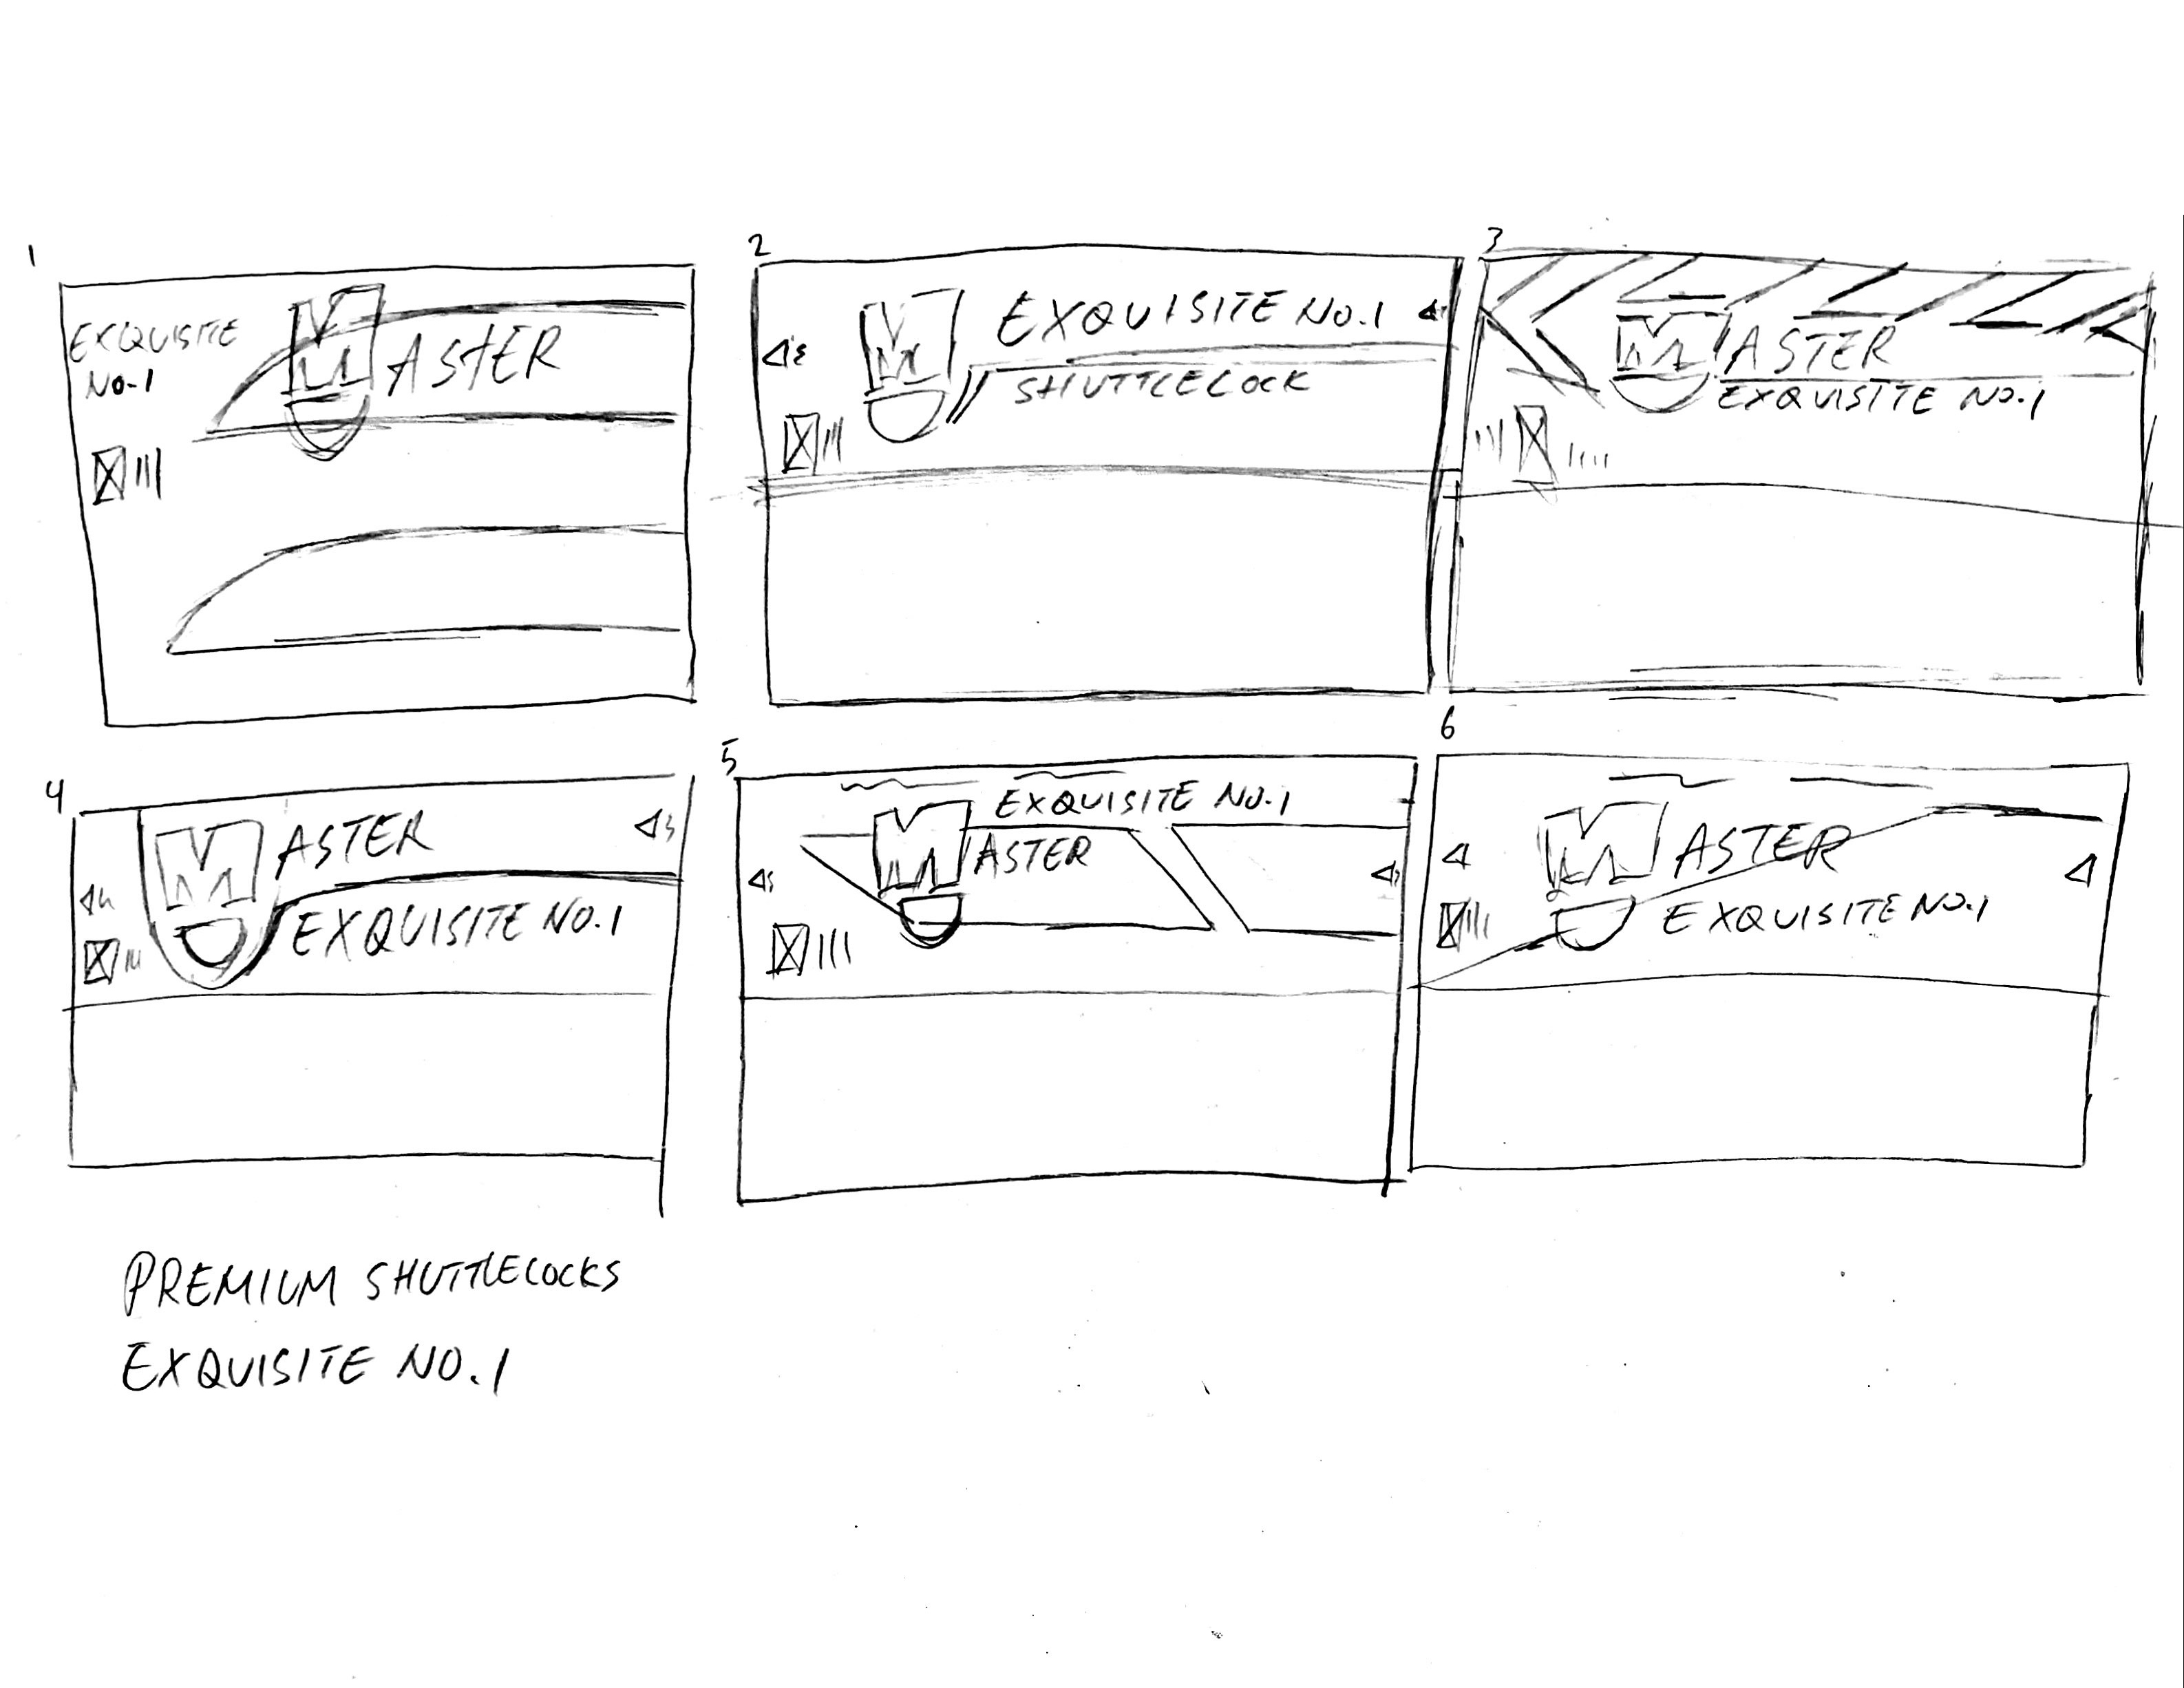 1
EXQUISITE
NO.1
M ASTER
2
M
EXQUISITE NO.1
SHUTTLECOCK
3
M ASTER
EXQUISITE NO.1
4
M ASTER
EXQUISITE NO.1
5
EXQUISITE NO.1
M ASTER
6
M ASTER
EXQUISITE NO.1
PREMIUM SHUTTLECOCKS
EXQUISITE NO.1